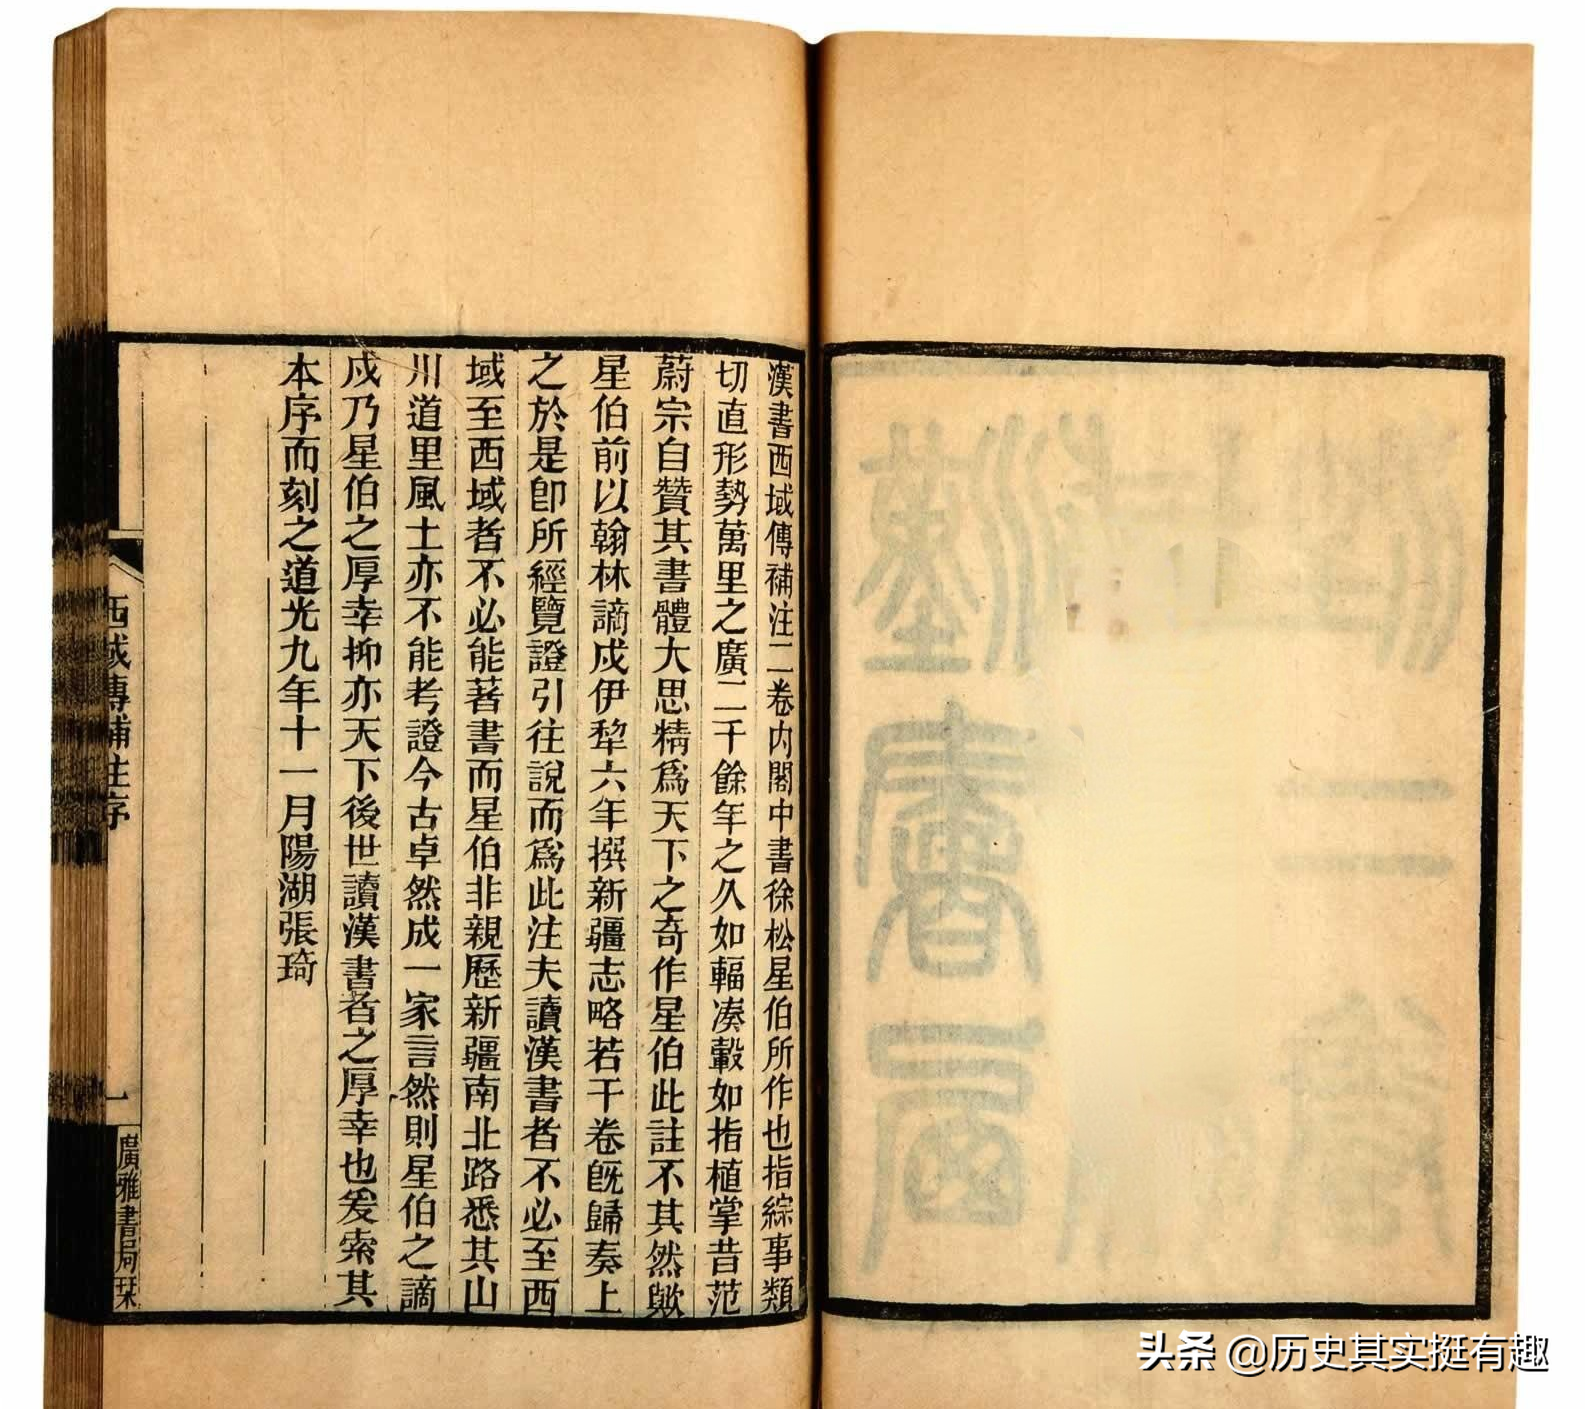 漢書西域傳補注二卷內閣中書徐松星伯所作也指綜事類
切直形勢萬里之廣二千餘年之久如輻湊轂如指植掌昔范
蔚宗自贊其書體大思精爲天下之奇作星伯此註不其然歟
星伯前以翰林謫戍伊犂六年撰新疆志略若干卷旣歸奏上
之於是卽所經覽證引往說而爲此注夫讀漢書者不必至西
域至西域者不必能著書而星伯非親歷新疆南北路悉其山
川道里風土亦不能考證今古卓然成一家言然則星伯之謫
戍乃星伯之厚幸抑亦天下後世讀漢書者之厚幸也爰索其
本序而刻之道光九年十一月陽湖張琦
西域傳補注序
一
廣雅書局栞
头条 @历史其实挺有趣